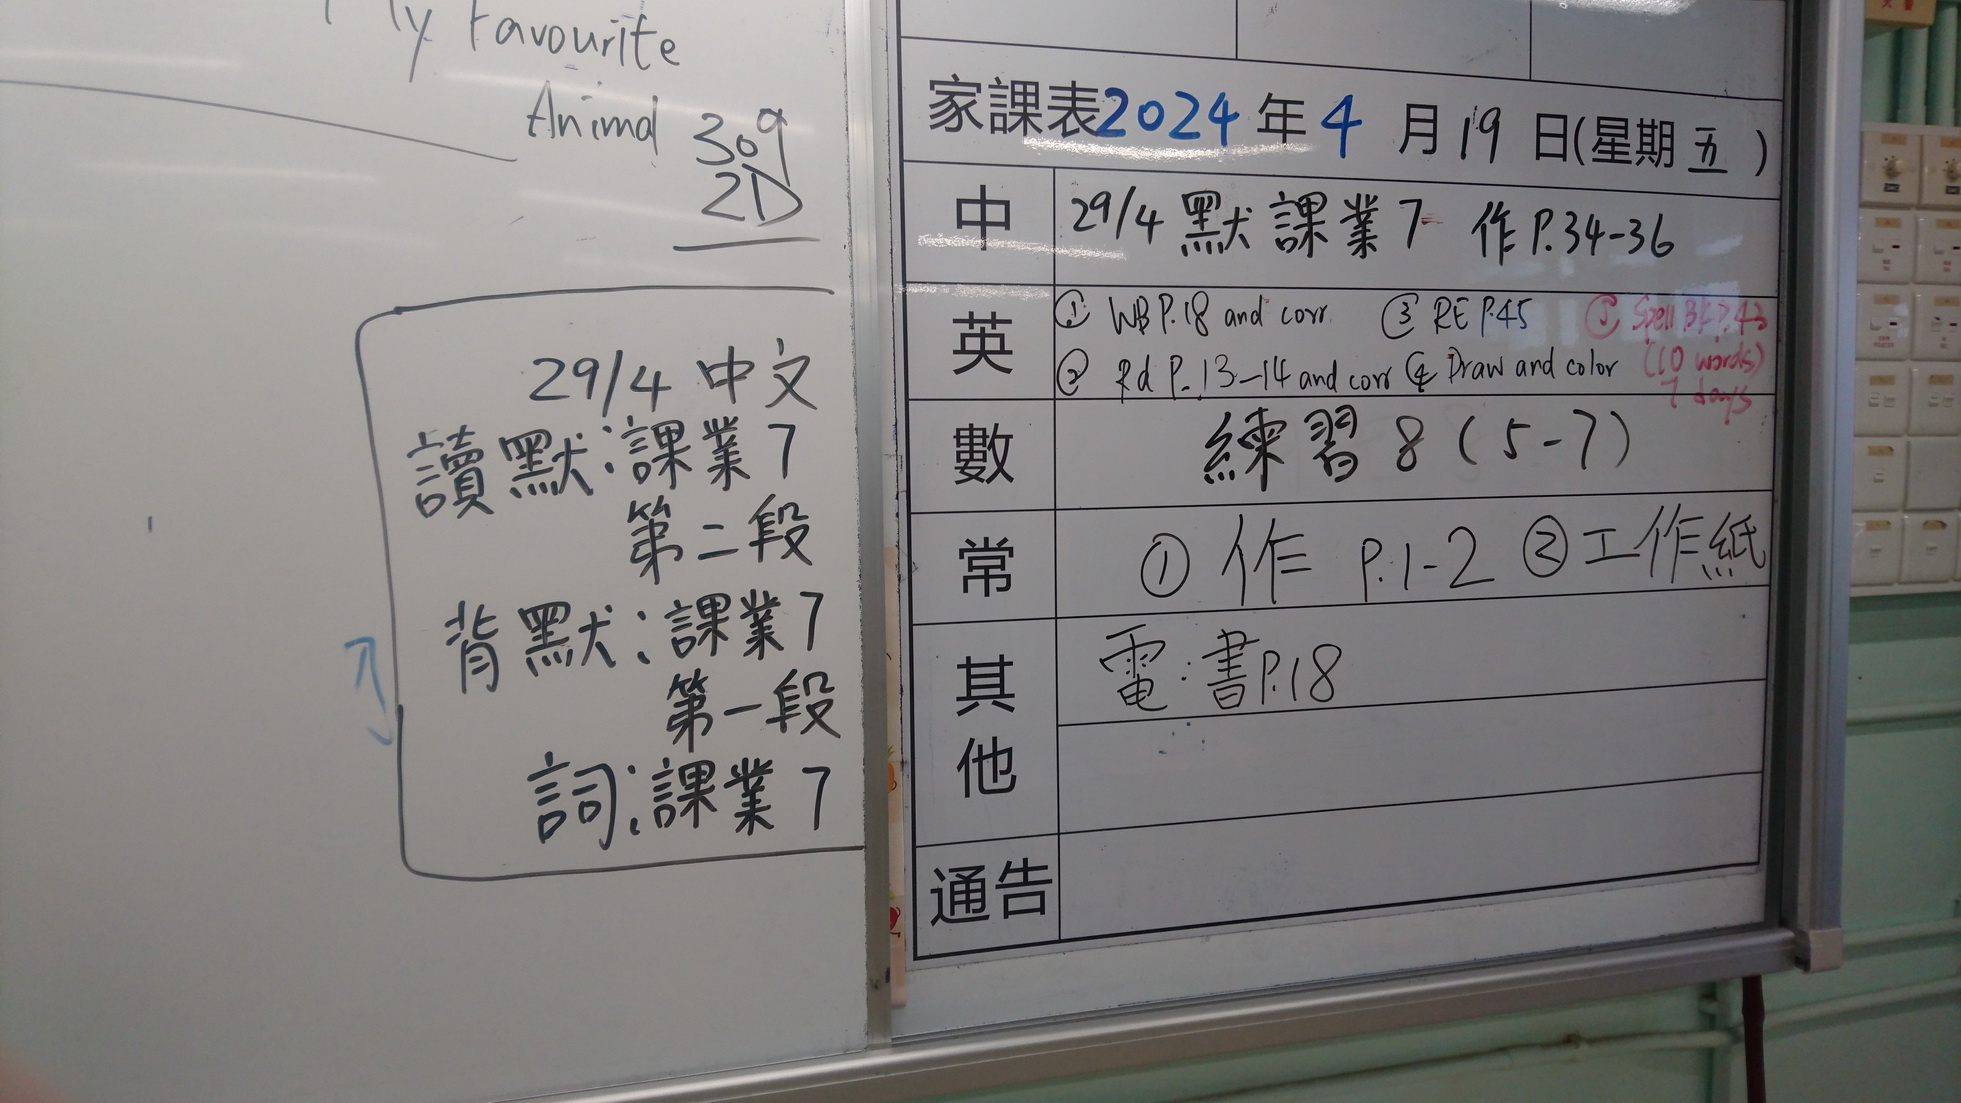 My Favourite
Animal
309
2D
29/4 中文
讀默:課業7
第二段
背默:課業7
第一段
詞:課業7
家課表2024年4月19日(星期五)
中 29/4 默 課業7 作P.34-36
英 ① WB P.18 and corr ③ RE P.45 ⑤ Spell Bk P.43
② Rd P.13-14 and corr ④ Draw and color (10 words)
7 days
數 練習8(5-7)
常 ① 作 P.1-2 ② 工作紙
其他 電:書P.18
通告